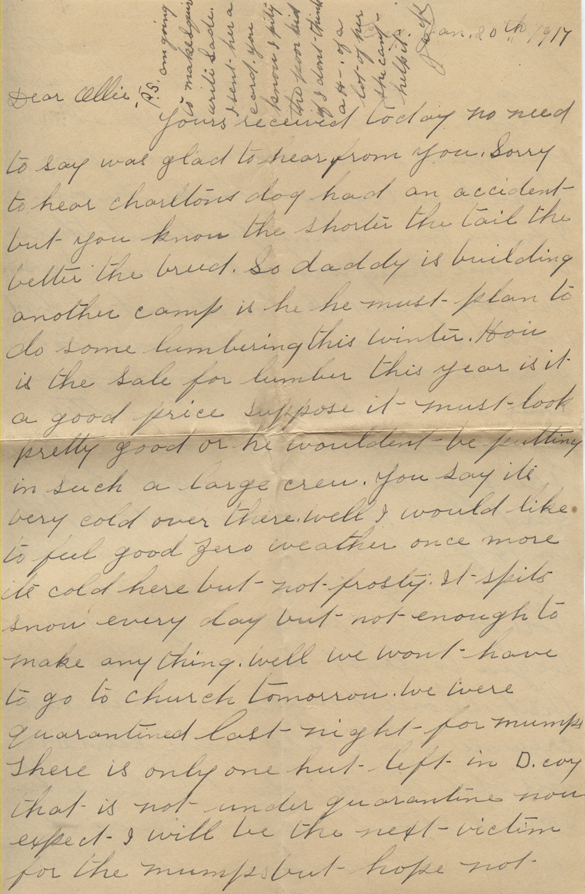 Jan. 20th 1917
Dear Ollie,
Yours received today no need
to say was glad to hear from you. Sorry
to hear charltons dog had an accident
but you know the shorter the tail the
better the breed. So daddy is building
another camp is he he must plan to
do some lumbering this winter. How
is the sale for lumber this year is it
a good price suppose it must look
pretty good or he wouldent be putting
in such a large crew. You say its
very cold over there. well I would like
to feel good Zero weather once more
its cold here but not frosty. It spits
snow every day but not enough to
make any thing. Well we wont have
to go to church tomorrow. We were
quarantined last night for mumps
There is only one hut left in D. coy
that is not under quarantine now
expect I will be the next victim
for the mumps but hope not
P.S. am going
to
write Sadie.
I sent her a
card. you
know I pity
the poor kid
if I dont think
a H-. of a
lot of her
she cant
help it.